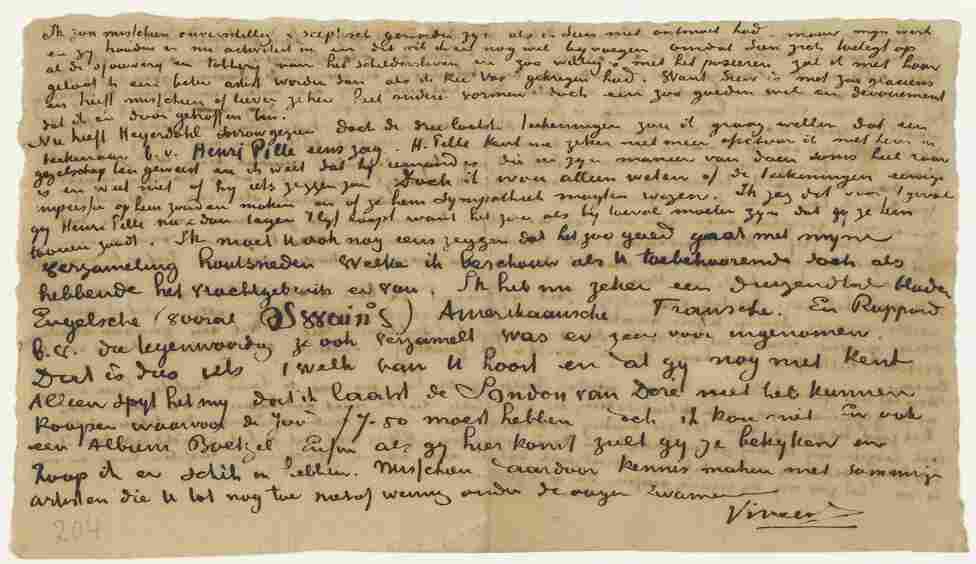 Ik zou misschien onverschillig & sceptisch geworden zijn als ik Sien niet ontmoet had maar mijn werk
en zij houden er nu activiteit in en dit wil ik er nog wel bijvoegen omdat Sien zich toelegt op
al de van het schildersleven en zoo willig is met het poseren zal ik met haar
geloof ik een beter artist worden dan als ik Kee Vos gekregen had. Want Sien is niet zoo gracieus
en heeft misschien of liever zeker heel andere vormen doch een zoo goeden wil en devouement
dat ik er door getroffen ben.
Nu heeft Heyerdahl gezien doch de drie laatste teekeningen zou ik graag willen dat een
teekenaar b.v. Henri Pille eens zag. H. Pille kent me zeker niet meer ofschoon ik met hem in
gezelschap ben geweest en ik weet dat hij is die in zijn manier van doen soms heel raar
is en weet niet of hij iets zeggen zou Doch ik wou alleen weten of de teekeningen eenige
impressie op hem zouden maken en of ze hem sympathiek Ik zeg dit voor 't geval
gij Henri Pille nu & dan want het zou als bij toeval moeten zijn dat gij ze hem
toonen zoudt. Ik moet U ook nog eens zeggen dat het zoo goed gaat met mijne
verzameling houtsneden welke ik beschouw als U toebehoorende doch als
hebbende het vruchtgebruik er van. Ik heb nu zeker een duizendtal bladen
Engelsche (vooral Swain's) Amerikaansche Fransche. En Rappard
b.v. die tegenwoordig ze ook verzamelt was er zeer voor ingenomen.
Dat is dus iets 't welk van U hoort en dat gij nog niet kent
Alleen spijt het mij dat ik laatst de London van Doré niet heb kunnen
koopen waarvoor de Jood f 7.50 moest hebben doch ik kon niet En ook
een Album Boetzel Enfin als gij hier komt zult gij ze bekijken en
hoop ik er schik in hebben. Misschien daardoor kennis maken met sommige
artisten die U tot nog toe niet of weinig onder de oogen kwamen
Vincent
204